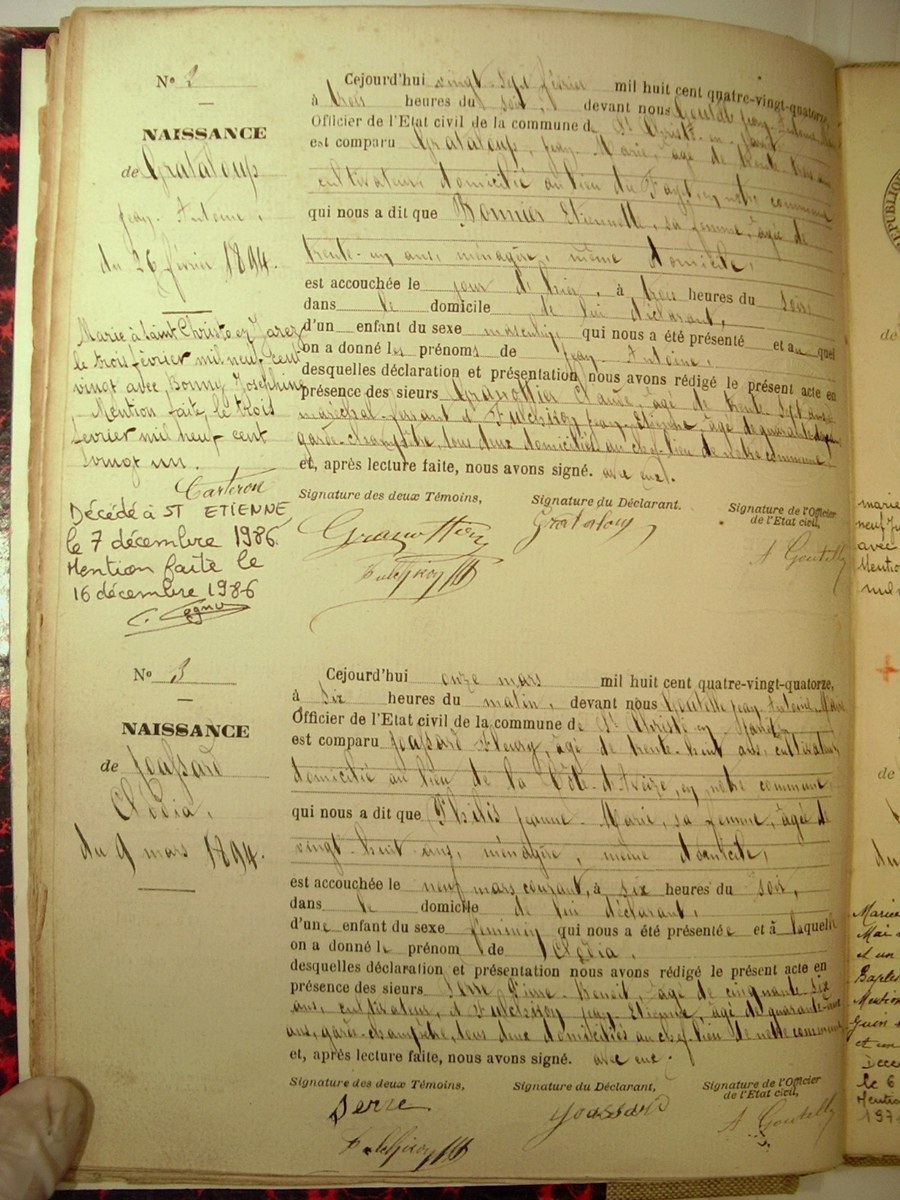 N° 2
NAISSANCE
de Grataloup
Jean-Antoine,
du 26 février 1894.
Marié à Saint Christo en Jarez
le trois février mil neuf cent
vingt avec Bonny Joséphine
Mention faite le trois
février mil neuf cent
vingt un.
Carteron
Décédé à ST ETIENNE
le 7 décembre 1986.
Mention faite le
16 décembre 1986
Cejourd'hui vingt-sept février mil huit cent quatre-vingt-quatorze,
à trois heures du soir, devant nous Goutelle Jean-Antoine
Officier de l'Etat civil de la commune de St Christo-en-
est comparu Grataloup, Jean-Marie, âgé de trente-trois ans
cultivateur, domicilié au lieu du Fayt en notre commune
qui nous a dit que Bonnier Etiennette, sa femme, âgée de
trente-un ans, ménagère, même domicile,
est accouchée le jour d'hier, à trois heures du soir
dans le domicile de lui déclarant,
d'un enfant du sexe masculin qui nous a été présenté et auquel
on a donné les prénoms de Jean-Antoine,
desquelles déclaration et présentation nous avons rédigé le présent acte en
présence des sieurs Granottier Claude, âgé de trente-sept ans
maréchal-ferrant et Fulchiron Jean-Etienne, âgé de quarante
garde-champêtre, tous deux domiciliés au chef-lieu de notre commune
et, après lecture faite, nous avons signé. avec eux.
Signature des deux Témoins, Signature du Déclarant. Signature de l'Officier
de l'Etat civil,
Granottier Grataloup A Goutelle
Fulchiron
N° 3
NAISSANCE
de Joassard
Clodia,
du 9 mars 1894.
Cejourd'hui onze mars mil huit cent quatre-vingt-quatorze,
à six heures du matin, devant nous Goutelle Jean-Antoine-Marie
Officier de l'Etat civil de la commune de St Christo-en-
est comparu Joassard Fleury, âgé de trente-huit ans, cultivateur
domicilié au lieu de la Côte-d'Aveize, en notre commune,
qui nous a dit que Philis Jeanne-Marie, sa femme, âgée de
vingt-huit ans, ménagère, même domicile,
est accouchée le neuf mars courant, à six heures du soir,
dans le domicile de lui déclarant,
d'une enfant du sexe féminin qui nous a été présentée et à laquelle
on a donné le prénom de Clodia.
desquelles déclaration et présentation nous avons rédigé le présent acte en
présence des sieurs Serre Pierre-Benoit, âgé de cinquante-six
ans, cultivateur, et Fulchiron Jean-Etienne, âgé de quarante
ans, garde-champêtre, tous deux domiciliés au chef-lieu de notre commune
et, après lecture faite, nous avons signé. avec eux.
Signature des deux Témoins, Signature du Déclarant, Signature de l'Officier
de l'Etat civil,
Serre Joassard A Goutelle
Fulchiron